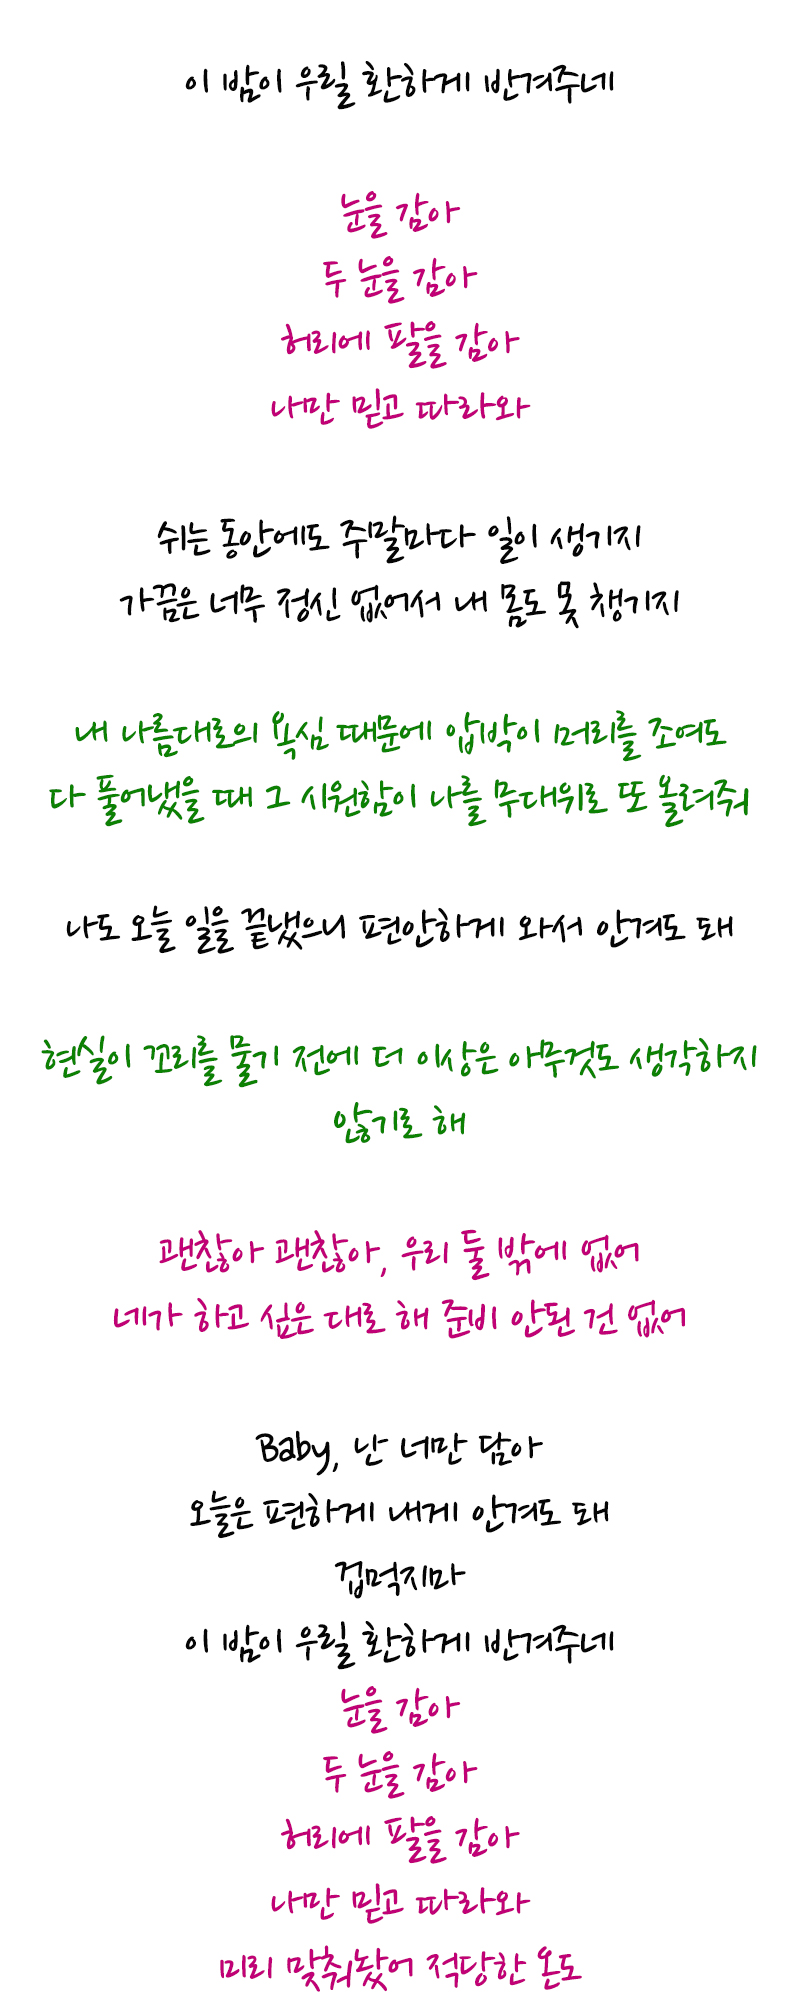 이 밤이 우릴 환하게 반겨주네
눈을 감아
두 눈을 감아
허리에 팔을 감아
나만 믿고 따라와
쉬는 동안에도 주말마다 일이 생기지
가끔은 너무 정신 없어서 내 몸도 못 챙기지
내 나름대로의 욕심 때문에 압박이 머리를 조여도
다 풀어냈을 때 그 시원함이 나를 무대위로 또 올려줘
나도 오늘 일을 끝냈으니 편안하게 와서 안겨도 돼
현실이 꼬리를 물기 전에 더 이상은 아무것도 생각하지
않기로 해
괜찮아 괜찮아, 우리 둘 밖에 없어
네가 하고 싶은 대로 해 준비 안된 건 없어
Baby, 난 너만 담아
오늘은 편하게 내게 안겨도 돼
겁먹지마
이 밤이 우릴 환하게 반겨주네
눈을 감아
두 눈을 감아
허리에 팔을 감아
나만 믿고 따라와
미리 맞춰놨어 적당한 온도